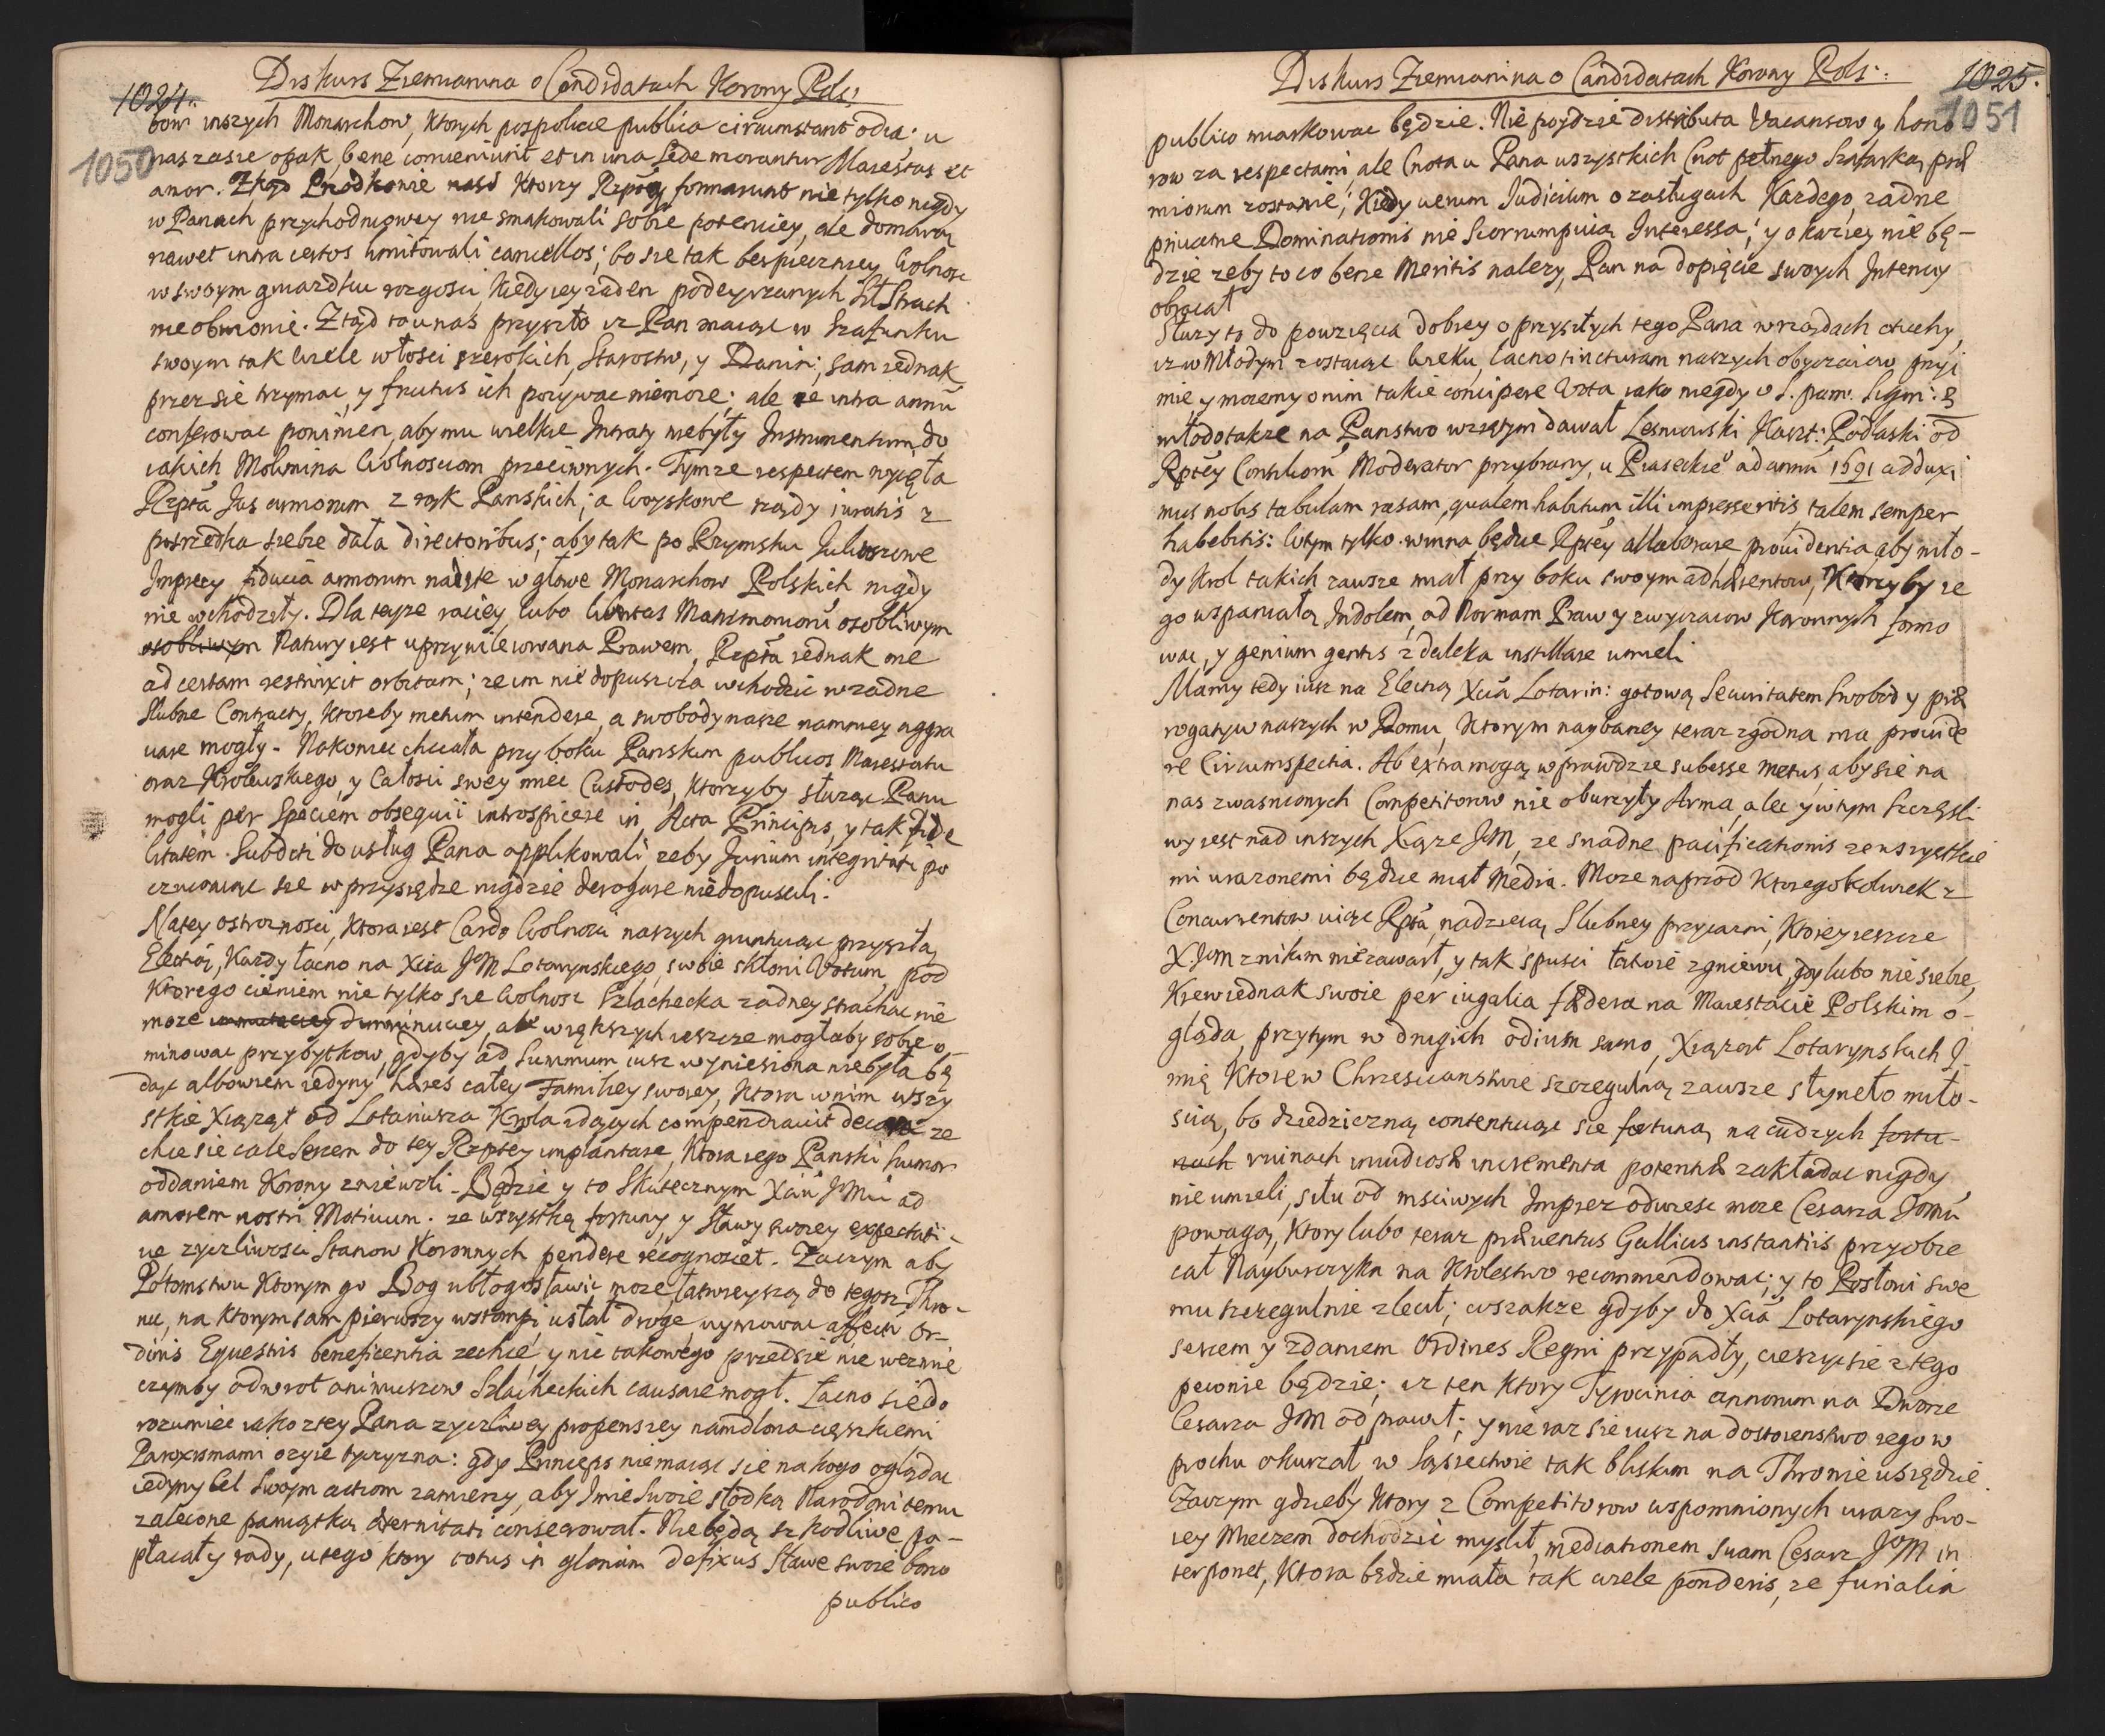 1024.
Diskurs Ziemianina o Candidatach Korony Pols:
1050
bow inszych Monarchow, ktorych pospolicie publica circumstant odia; u
nas zasie opak, bene conveniunt et in una sede morantur Maiestas et
amor. Ztąd Przodkowie nasi ktorzy Rzptą formarunt nie tylko nigdy
w Panach przychodniowey nie smakowali sobie potenciey, ale domową
nawet intra certos limitowali cancellos; bo sie tak bespieczniey Wolnosc
w swoym gniazdku rozgosci, kiedy iey zaden podeyrzanych Sił Strach
nie obwionie. Ztąd to u nas przyszło iz Pan maiąc w Szafunku
swoym tak wiele włosci szerokich, Starostw, y Danin; sam iednak
przez sie trzymac, y fructus ich pozywac niemoze; ale ie intra annũ
conferowac powinien, aby mu wielkie Intraty niebyły Instrumentum do
iakich Molimina Wolnosciom przeciwnych. Tymze respectem wyięła
Rzpta Jus armorum z rąk Panskich; a Woyskowe rządy iuratis z
posrzodka siebie dała directoribus; aby tak po Rzymsku Juliuszowe
Imprezy fiducia armorum nadęte w głowę Monarchow Polskich nigdy
nie wchodziły. Dla teyze raciey lubo libertas Matrimoniorũ osobliwym
osobliwym Natury iest uprzywileiowana Prawem, Rzpta iednak one
ad certam restrinxit orbitam; ze im nie dopuszcza wchodzic w zadne
Slubne Contracty, ktoreby metum intendere, a swobody nasze nammiey aggra
uare mogły. Nakoniec chciała przy boku Panskim publicos Maiestatu
oraz Krolewskiego, y Całosci swey miec Custodes, ktorzyby słuząc Panu
mogli per speciem obsequii introspicere in Acta Principis, y tak fide
litatem Subditi do usług Pana applikowali zeby Jurium integritati po
czuwaiąc sie w przysiędze nigdzie derogare niedopuscili.
Na tey ostroznosci, ktora iest Cardo Wolnosci naszych gruntuiąc przyszłą
Electią, Kazdy łacno na Xcia JM Lotarynskiego swoie skłoni Votum, pod
ktorego cieniem nie tylko sie Wolnosc Szlachecka zadney strachac nie
moze diminuciey, ale większych ieszcze mogłaby sobie o
minowac przybytkow, gdyby ad Summum iusz wyniesiona niebyła bę
dąc albowiem iedyny haeres całey Familiey swoiey, ktora w nim wszy
stkie Xiąząt od Lotariusza Krola idących compendiauit decora ze
chce sie cale sercem do tey Rzptey implantare, ktora iego Panski humor
oddaniem Korony zniewoli. Będzie y to Skutecznym Xciu JMci ad
amorem nostri Motiuum. ze wszystkę fortuny y sławy swoiey expectati
ue zyczliwosci Stanow Koronnych pendere recognoscet. Zaczym aby
Potomstwu ktorym go Bog ubłogosławic moze, łatwieyszą do tegosz Thro-
nu, na ktorym sam pierwszy wstąmpi, usłał drogę, uymowac affecti Or-
dinis Equestris beneficentia zechce, y nic takowego przedsie nie wezmie
czymby odwrot animuszow Szlacheckich causare mogł. Łacno się do
rozumiec iako z tey Pana zyczliwey propensiey namdlona cięszkiemi
Paroxismami ozyie oyczyzna: gdy Princeps niemaiąc sie na kogo oglądac
iedyny Cel swoym actiom zamierzy, aby Imie swoie słodką Narodowi temu
zalecone pamiątką aeternitati consecrował. Nie będą szkodliwe po-
płacały rady, u tego ktory totus in gloriam defixus Sławe swoie bono
publico
1025.
Diskurs Ziemianina o Candidatach Korony Pols:
1051
publico miarkowac będzie. Nie poydzie distributa Vacansow y hono
row za respectami, ale Cnota u Pana wszystkich Cnot pełnego Szafarką præ
miorum zostanie; kiedy uerum Iudicium o zasługach kazdego, zadne
priuatae Dominationis nie scorrumpuią Interessa; y okaziey nie bę-
dzie zeby to co bene Meritis nalezy, Pan na dopięcie swoych Intenciy
obracał
Słuzy to do powzięcia dobrey o przyszłych tego Pana w rządach otuchy,
iz w Młodym zostaiąc wieku, łacno tincturam naszych obyczaiow przyi
mie y mozemy o nim takie concipere Vota iako niegdy o S. pam. Sigm: 3
młodo takze na Panstwo wziętym dawał Lesniowski Kaszt: Podlaski od
Rptey Consiliorũ Moderator przybrany, u Piaseckie° ad annũ 1591 adduxi
mus nobis tabulam rasam, qualem habitum illi impresseritis talem semper
habebitis: W tym tylko winna będzie Rptey allaborare prouidentia aby mło-
dy Krol takich zawsze miał przy boku swoym adhærentow, ktorzy by ie
go wspaniałą Indolem, ad Normam Praw y zwyczaiow Koronnych formo
wac, y genium gentis z daleka instillare umieli
Mamy tedy iusz na Electią Xcia Lotarin: gotową Securitatem Swobod y præ
rogatyw naszych w Domu, ktorym naybarziey teraz zgodna ma prouide
re Circumspectia. Ab extra mogą wprawdzie subesse metus, aby sie na
nas zwasnionych Competitorow nie oburzyły Arma, alec y w tym szczęsli
wy iest nad inszych Xiąze JM, ze snadne pacificationis ze wszystkie
mi urazonemi będzie miał Media. Moze naprzod ktoregokolwiek z
Concurrentow uiąc Rpta nadzieią Slubney przyiazni, ktorey ieszcze
X JM z nikim nie zawarł, y tak spusci łatwie z gniewu, gdy lubo nie siebie,
Krew iednak swoię per iugalia fædera na Maiestacie Polskim o-
gląda, przytym w drugich odium samo, Xiąząt Lotarynskich I-
mię ktore w Chrzescianstwie szczegulną zawsze słyneło miło-
scią, bo dziedziczną contentuiąc sie fortuną na cudzych fortu-
nach ruinach inuidiosæ incrementa potentiæ zakładac nigdy
nie umieli, siłu od msciwych Imprez odwiesc moze Cesarza Jomci
powagą, ktory lubo teraz præuentus Gallius instantiis przyobie
cał Nayburczyka na Krolestwo recommendowac; y to Posłowi swe
mu szczegulnie zlecił; wszakze gdyby do Xcia Lotarynskiego
sercem y zdaniem Ordines Regni przypadły, cieszyc sie z tego
pewnie będzie; iz ten ktory Tyrocinia armorum na Dworze
Cesarza JM odprawił; y nie raz sie iusz na dostoienstwo iego w
prochu okurzał, w Sąsiectwie tak bliskim na Thronie usiędzie.
Zaczym gdzieby ktory z Competitorow wspomnionych urazy Swo-
iey Mieczem dochodzic myslił, mediationem suam Cesarz JoM in
terponet, ktora będzie miała tak wiele ponderis, ze furialia